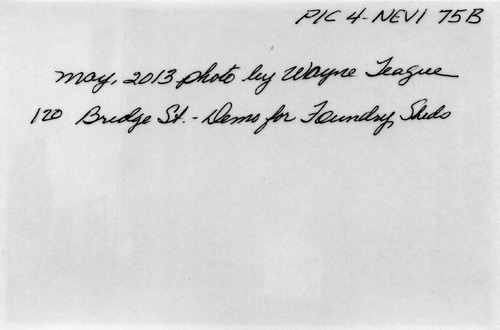 PIC 4-NEVI 75B
May, 2013 photo by Wayne Teague
120 Bridge St. - Demo for Foundry Sheds